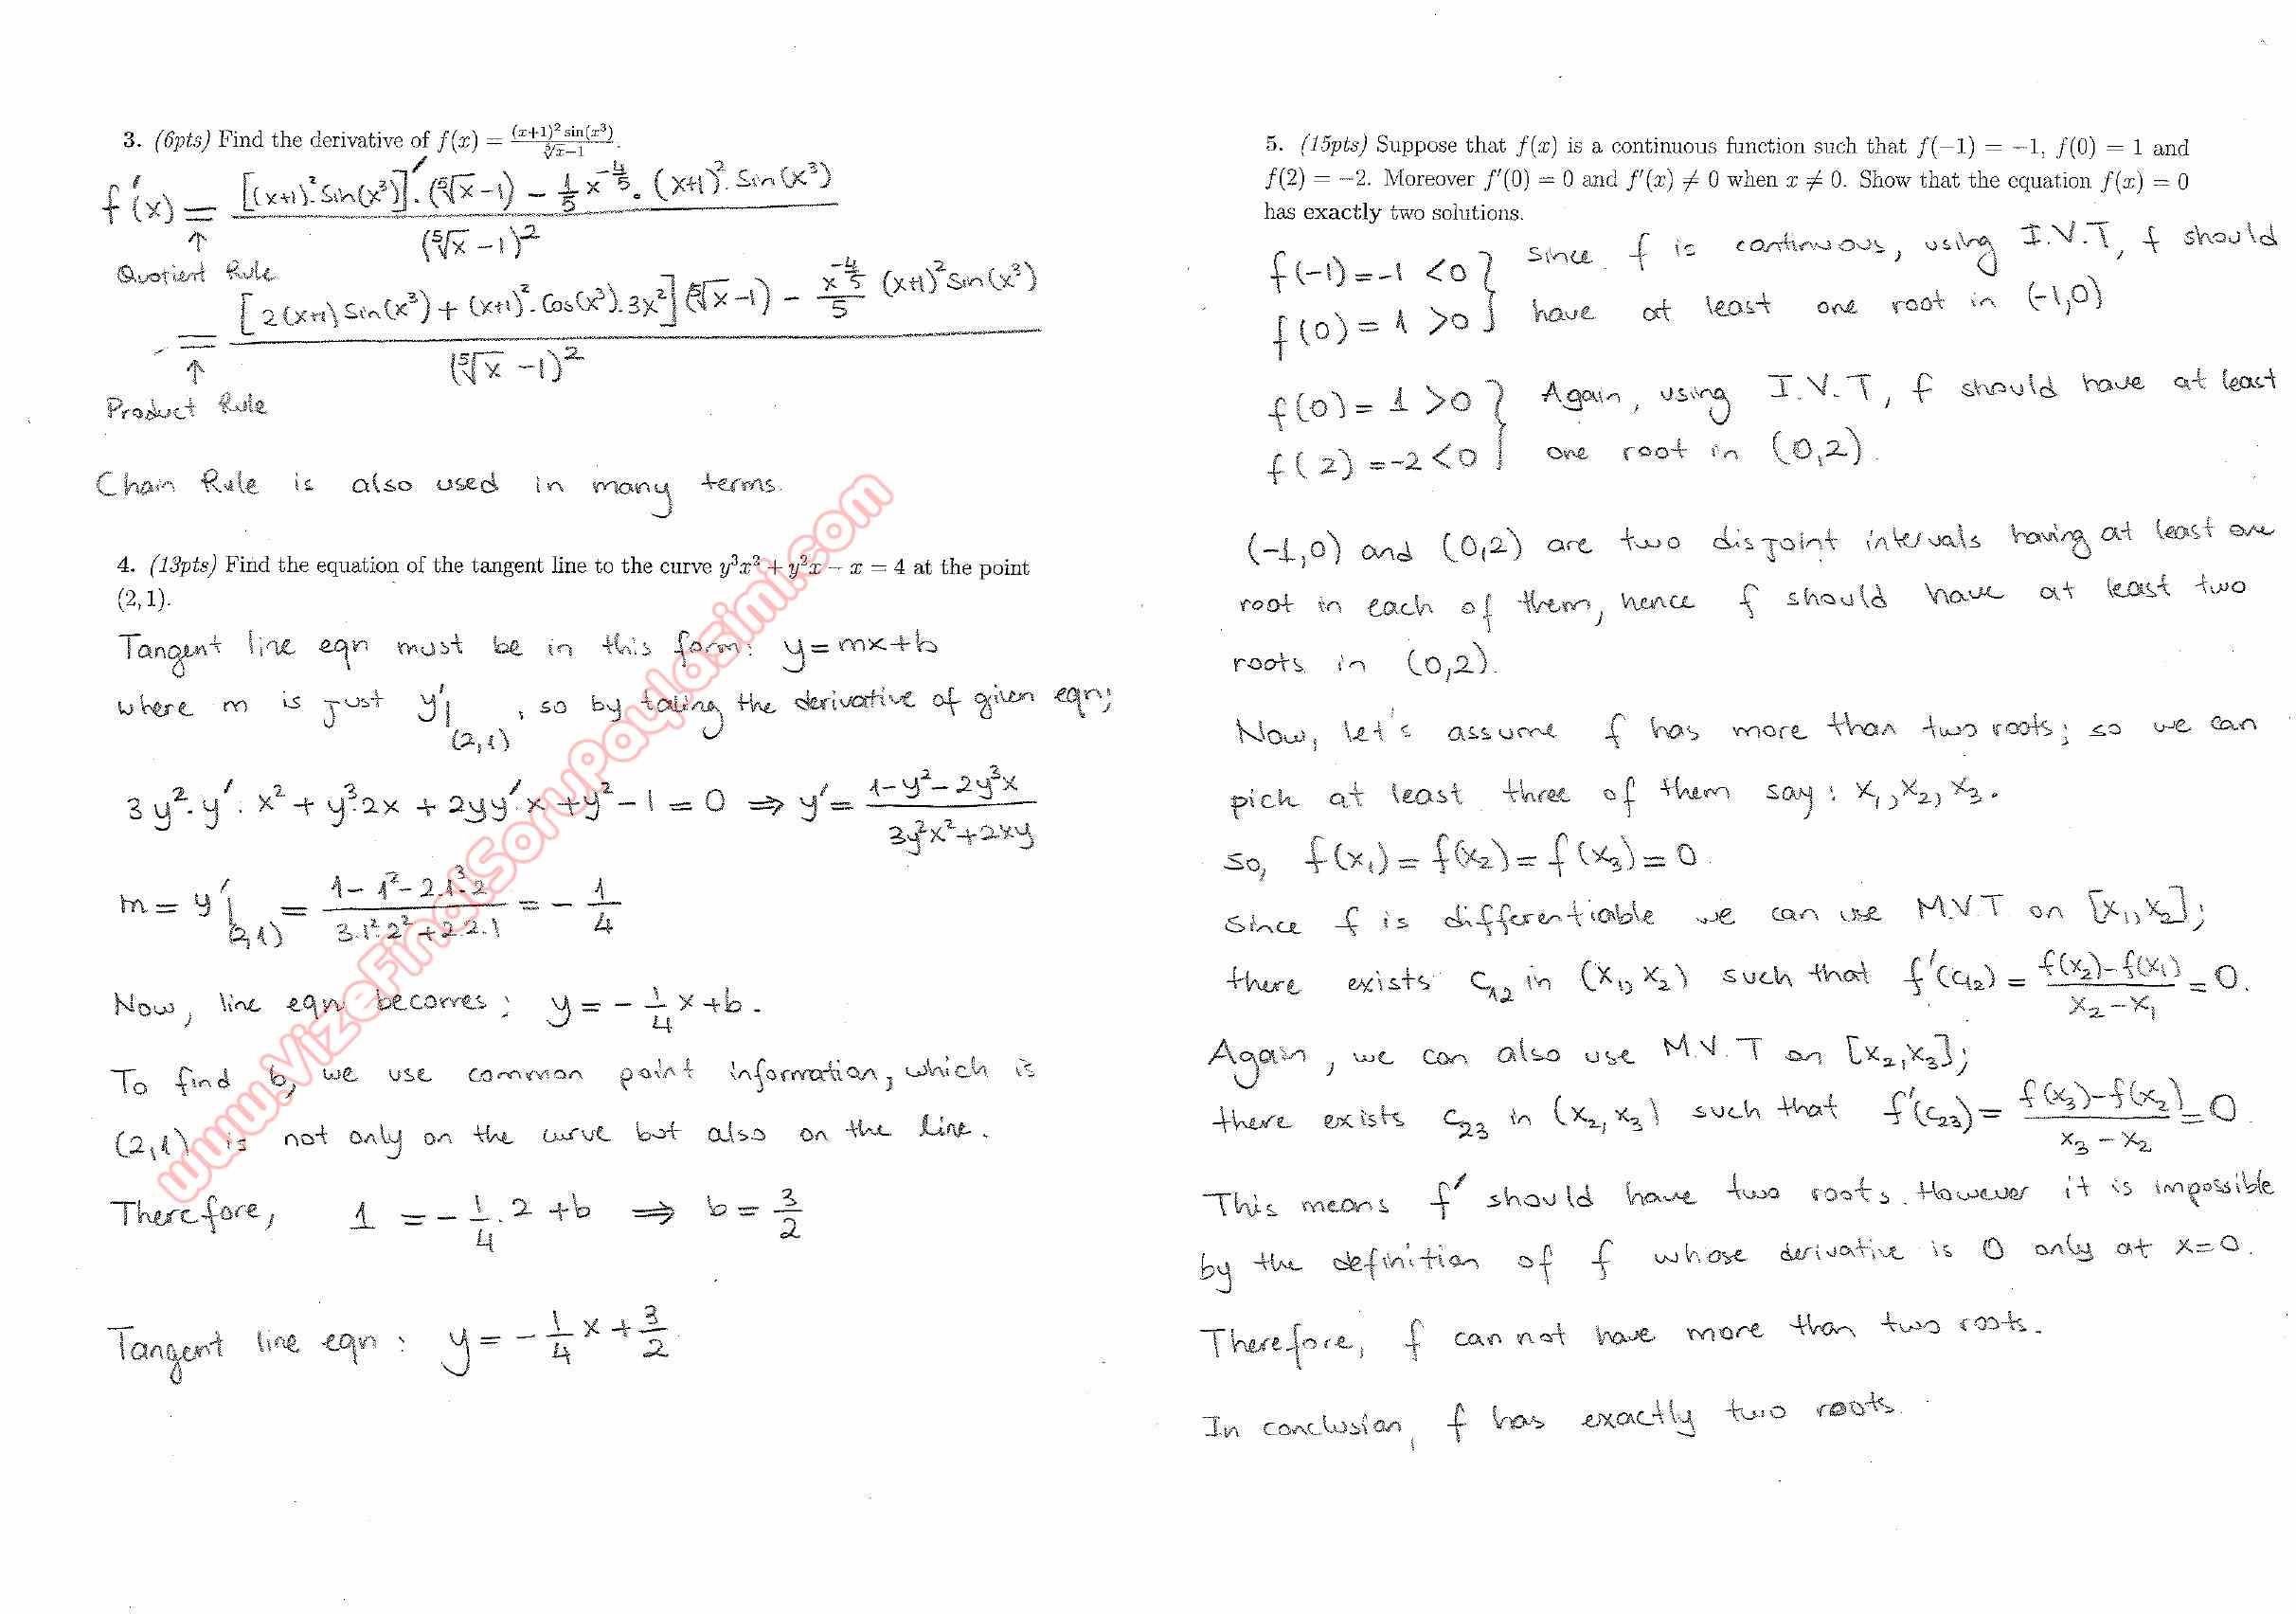 3. (6pts) Find the derivative of f(x) = (x+1)² sin(x³) / ⁵√x−1.
f'(x) = [(x+1)².Sin(x³)]'.(⁵√x −1) − 1/5 x^(-4/5). (x+1)².Sin(x³) / (⁵√x −1)²
↑
Quotient Rule
= [2(x+1)Sin(x³) + (x+1)².Cos(x³).3x²](⁵√x −1) − x^(-4/5)/5 (x+1)²Sin(x³) / (⁵√x −1)²
↑
Product Rule
Chain Rule is also used in many terms.
4. (13pts) Find the equation of the tangent line to the curve y³x² + y²x − x = 4 at the point
(2, 1).
Tangent line eqn must be in this form: y=mx+b
where m is just y'|(2,1) , so by taking the derivative of given eqn;
3y².y'.x² + y³.2x + 2yy'.x + y² − 1 = 0 ⇒ y' = 1−y²−2y³x / 3y²x²+2xy
m = y'|(2,1) = 1−1²−2.1³.2 / 3.1².2²+2.2.1 = − 1/4
Now, line eqn becomes ; y = − 1/4 x + b .
To find b, we use common point information, which is
(2,1) is not only on the curve but also on the line.
Therefore, 1 = − 1/4 . 2 + b ⇒ b = 3/2
Tangent line eqn : y = − 1/4 x + 3/2
5. (15pts) Suppose that f(x) is a continuous function such that f(−1) = −1, f(0) = 1 and
f(2) = −2. Moreover f'(0) = 0 and f'(x) ≠ 0 when x ≠ 0. Show that the equation f(x) = 0
has exactly two solutions.
f(-1) = -1 <0 } since f is continuous, using I.V.T, f should
f(0) = 1 >0 } have at least one root in (-1,0)
f(0) = 1 >0 } Again, using I.V.T, f should have at least
f(2) = -2 <0 } one root in (0,2).
(-1,0) and (0,2) are two disjoint intervals having at least one
root in each of them, hence f should have at least two
roots in (0,2).
Now, let's assume f has more than two roots; so we can
pick at least three of them say : x₁, x₂, x₃.
so, f(x₁) = f(x₂) = f(x₃) = 0.
Since f is differentiable we can use M.V.T on [x₁, x₂];
there exists c₁₂ in (x₁, x₂) such that f'(c₁₂) = f(x₂)−f(x₁) / x₂−x₁ = 0.
Again, we can also use M.V.T on [x₂, x₃];
there exists c₂₃ in (x₂, x₃) such that f'(c₂₃) = f(x₃)−f(x₂) / x₃−x₂ = 0.
This means f' should have two roots. However it is impossible
by the definition of f whose derivative is 0 only at x=0.
Therefore, f can not have more than two roots.
In conclusion, f has exactly two roots.
www.VizeFinalSoruPaylasimi.com